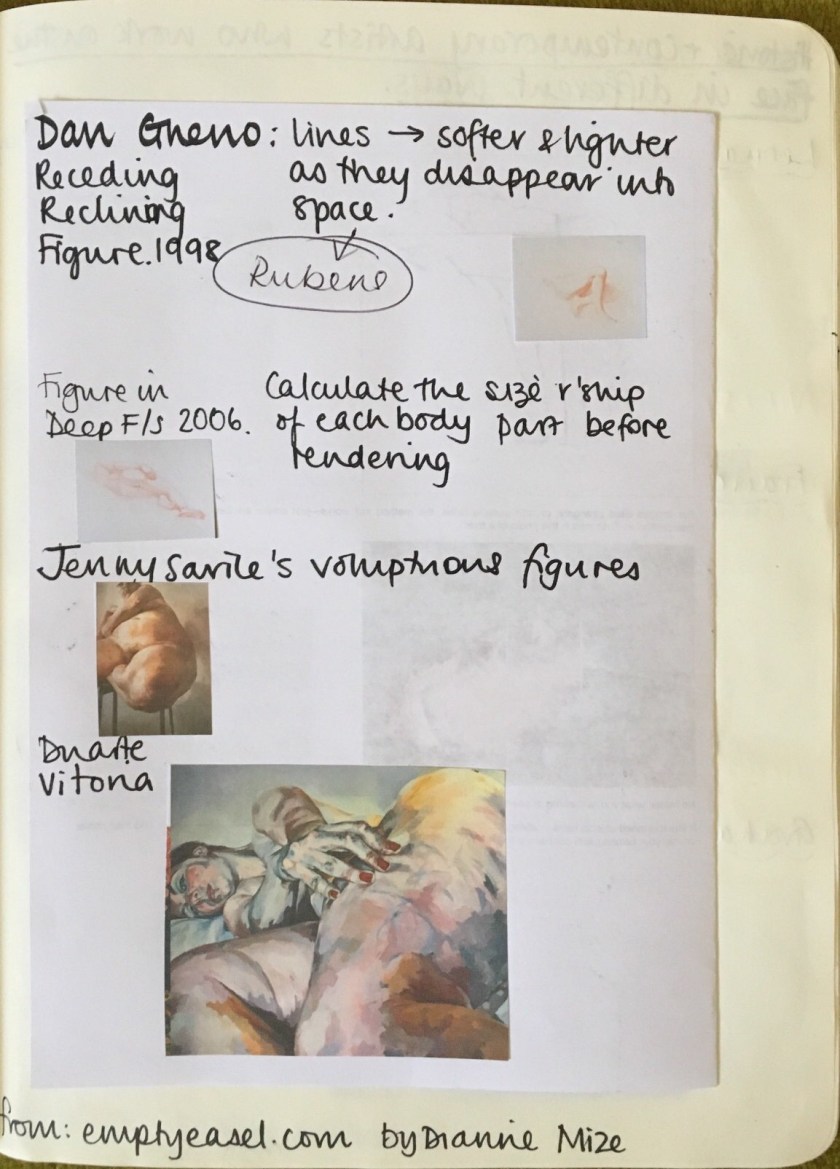 Dan Gheno: lines → softer & lighter
Receding as they disappear into
Reclining space.
Figure. 1998
Rubens
Figure in Calculate the size r'ship
Deep F/S 2006. of each body part before
rendering
Jenny Savile's voluptuous figures
Duarte
Vitoria
from: emptyeasel.com by Dianne Mize